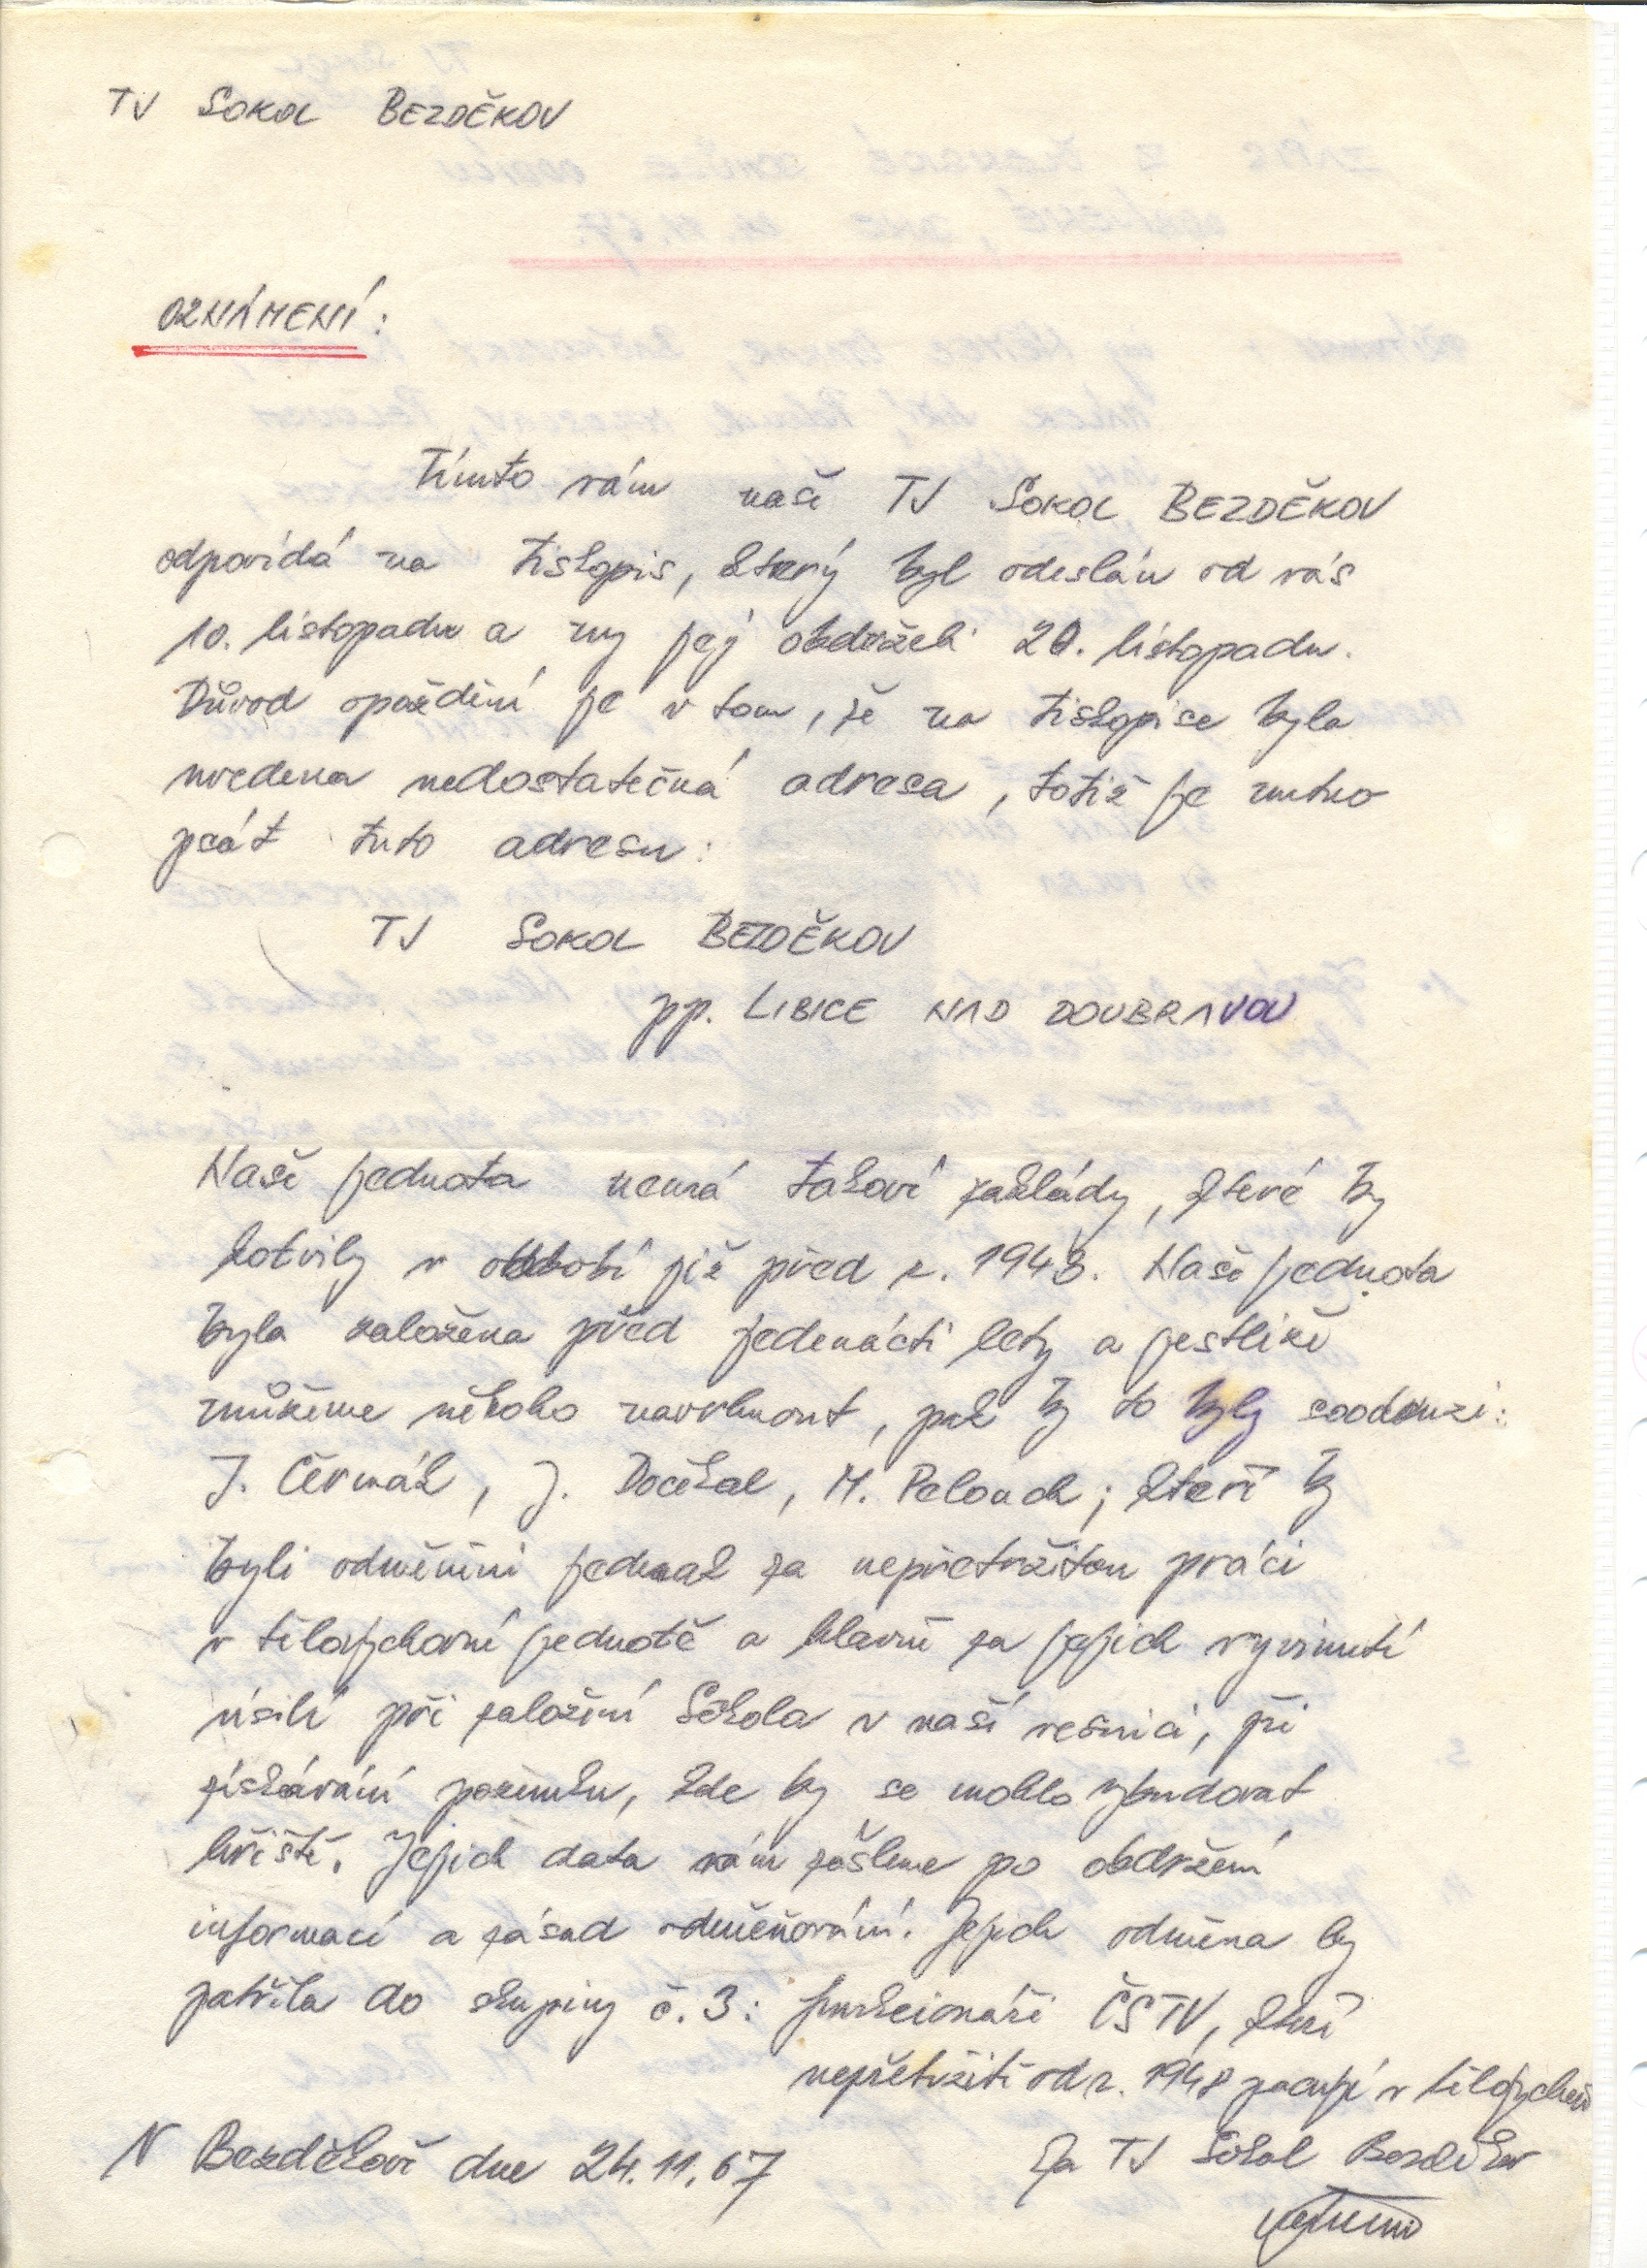 TJ SOKOL BEZDĚKOV
OZNÁMENÍ:
Tímto vám naše TJ SOKOL BEZDĚKOV
odpovídá na tiskopis, který byl odeslán od vás
10. listopadu a my jej obdrželi 20. listopadu.
Důvod opoždění je v tom, že na tiskopise byla
uvedena nedostatečná adresa, totiž je nutno
psát tuto adresu:
TJ SOKOL BEZDĚKOV
pp. LIBICE NAD DOUBRAVOU
Naše jednota nemá takové základy, které by
kotvily v období již před r. 1948. Naše jednota
byla založena před jedenácti lety a jestliže
můžeme někoho navrhnout, pak by to byly soodruzi:
J. Čermák, J. Dočekal, M. Pelouch; kteří by
byli odměněni jednak za nepřetržitou práci
v tělovýchovné jednotě a hlavně za jejich vyvinutí
úsilí při založení Sokola v naší vesnici, při
získávání pozemku, kde by se mohlo vybudovat
hřiště. Jejich data vám zašleme po obdržení
informací a zásad odměňování. Jejich odměna by
patřila do skupiny č. 3: funkcionáři ČSTV, kteří
nepřetržitě od r. 1948 pracují v tělovýchově
V Bezděkově dne 24.11.67
Za TJ Sokol Bezděkov